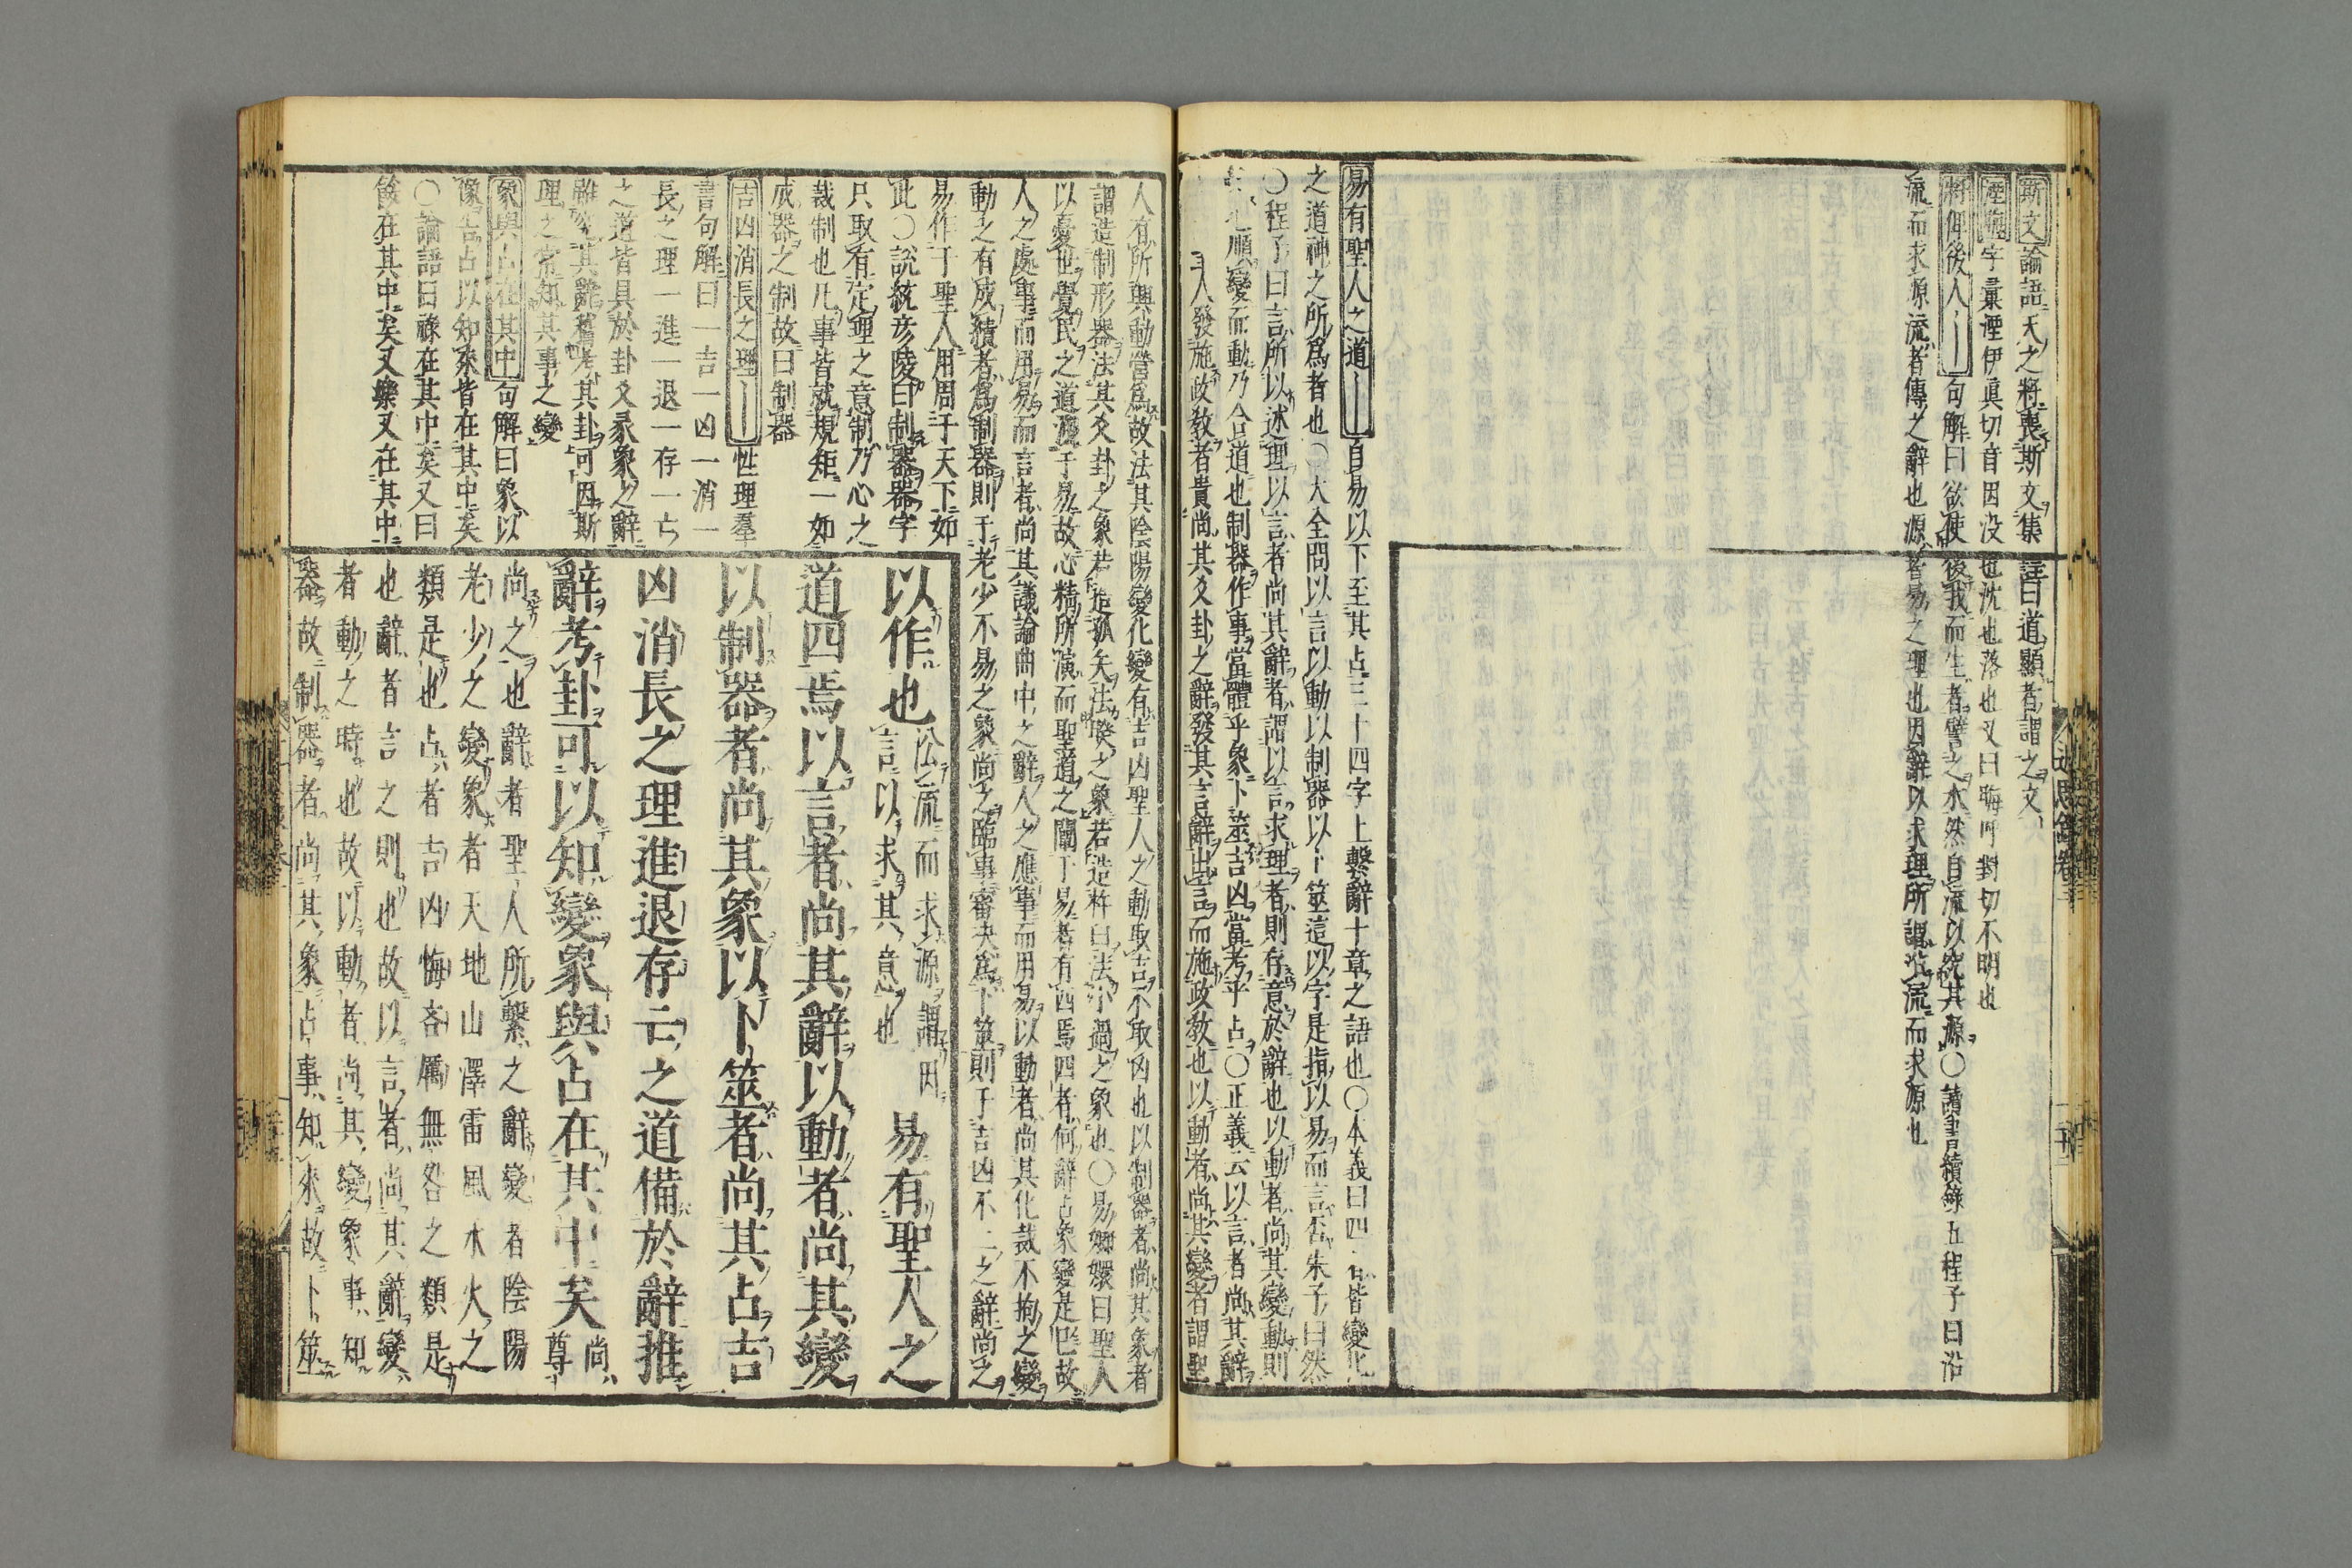 斯文論語天之將喪斯文集註曰道顯者謂之文
湮晦字彙湮伊眞切音因没也沈也落也又曰晦呼對切不明也
將俾後人―句解曰欲使後我而生者譬之水然自流以究其源〇讀書續錄五程子曰沿
流而求源流者傳之辭也源者易之理也因辭以求理所謂沿流而求源也
易有聖人之道―自易以下至其占三十四字上繫辭十章之語也〇本義曰四者皆變化
之道神之所爲者也〇大全問以言以動以制器以卜筮這以字是指以易而言否朱子曰然
〇程子曰言所以述理以言者尚其辭者謂以言求理者則存意於辭也以動者尚其變動則
順變而動乃合道也制器作事當體乎象卜筮吉凶當考乎占〇正義云以言者尚其辭
人發施政教者貴尚其爻卦之辭發其言辭出言而施政教也以動者尚其變者謂聖
人有所興動營爲故法其陰陽變化變有吉凶聖人之動取吉不取凶也以制器者尚其象者
謂造制形器法其爻卦之象若造弧矢法睽之象若造杵臼法小過之象也〇易嫏嬛曰聖人
以憂世覺民之道運于易故心精所演而聖道之闡于易者有四焉四者何辭占象變是巳故
人之處事而用易而言者尚其議論曲中之辭人之應事而用易以動者尚其化裁不拘之變
動之有成績者爲制器則于老少不易之象尚之臨事審決爲卜筮則于吉凶不二之辭尚之
易作于聖人用周于天下如
此〇說統彦陵曰制器器字
只取有定理之意制乃心之
裁制也凡事皆就規矩一如
成器之制故曰制器
吉凶消長之理―性理羣
書句解曰一吉一凶一消一
長之理一進一退一存一亡
之道皆具於卦爻彖象之辭
雖究其辭稽考其卦可因斯
理之常知其事之變
象與占在其中句解曰象以
像吉占以知來皆在其中矣
〇論語曰祿在其中矣又曰
餒在其中矣又樂又在其中
以作也沿流而求源謂因
言以求其意也易有聖人之
道四焉以言者尚其辭以動者尚其變
以制器者尚其象以卜筮者尚其占吉
凶消長之理進退存亡之道備於辭推
辭考卦可以知變象與占在其中矣尚
尊
尚之也辭者聖人所繫之辭變者陰陽
老少之變象者天地山澤雷風水火之
類是也占者吉凶悔吝厲無咎之類是
也辭者言之則也故以言者尚其辭變
者動之時也故以動者尚其變象事知
器故制器者尚其象占事知來故卜筮
近思錄卷三